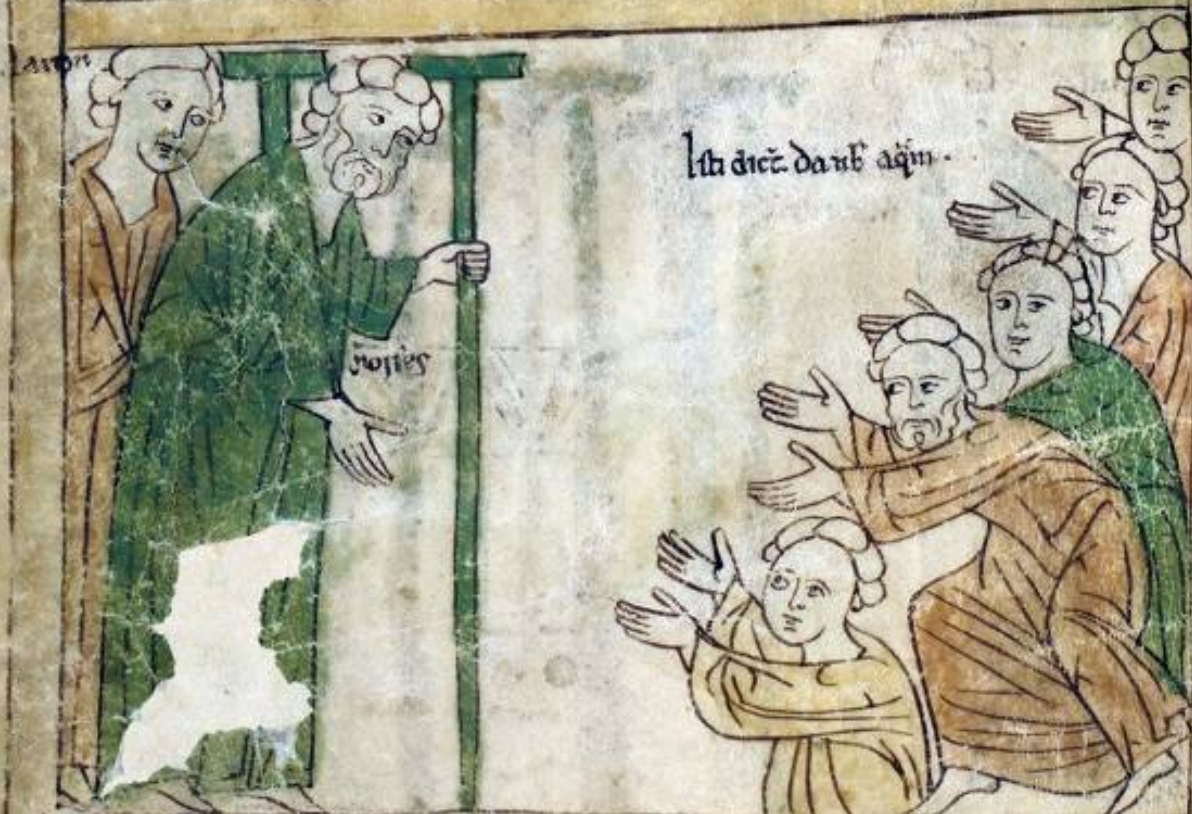 aaron
Isti dict. da nb aq̅m.
moises